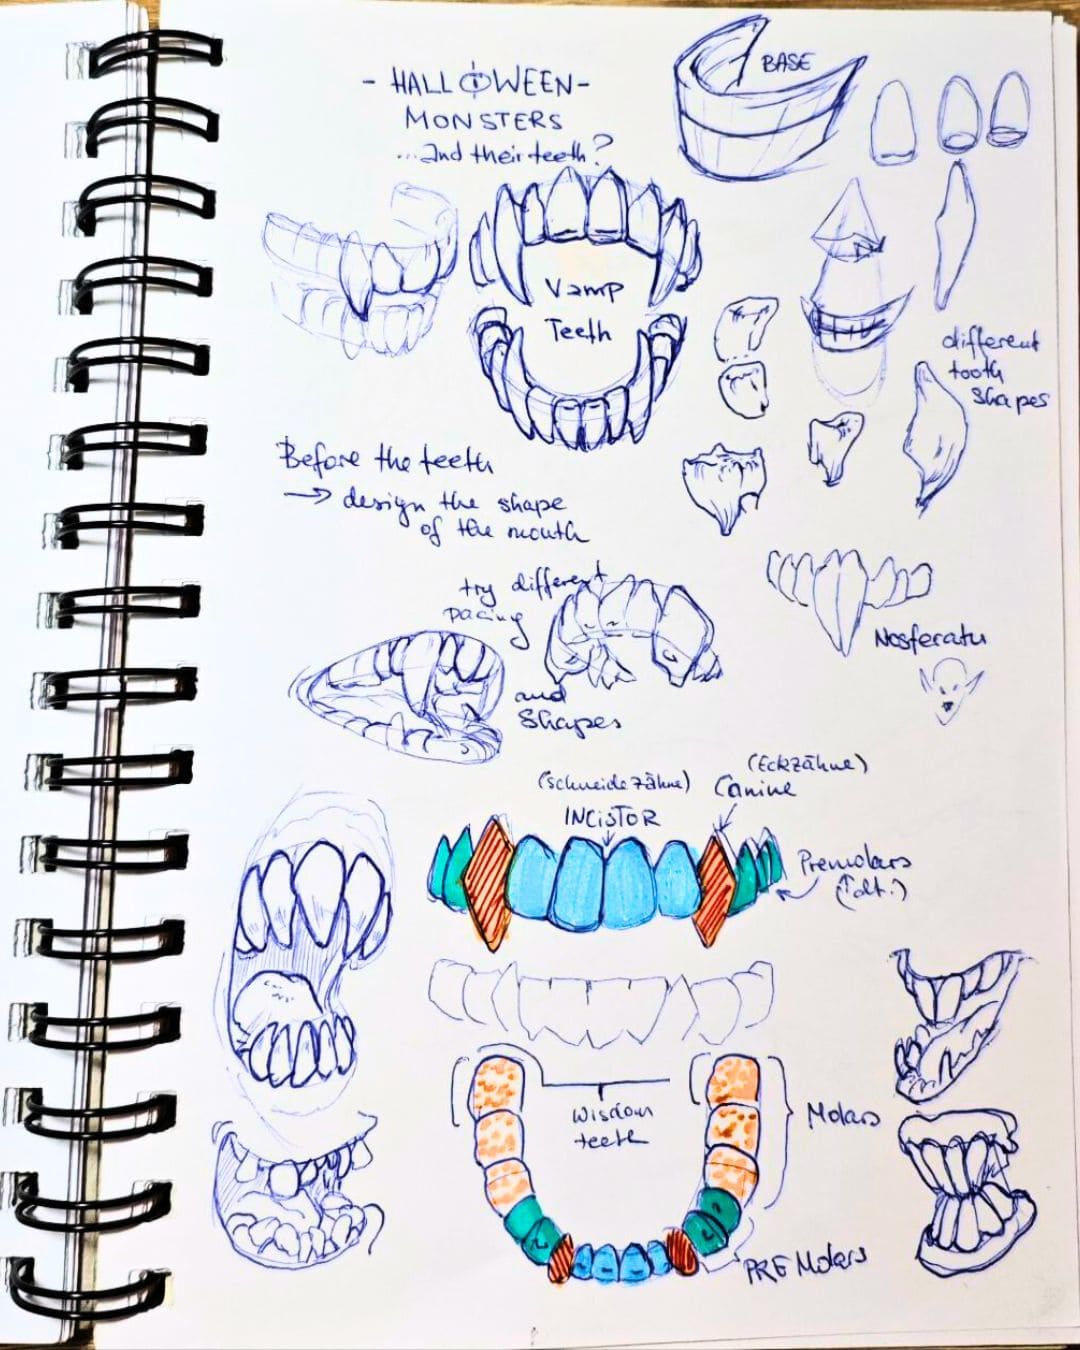 - HALLOWEEN -
MONSTERS
...and their teeth?
BASE
Vamp
Teeth
different
tooth
shapes
Before the teeth
→ design the shape
of the mouth
try different
pacing
and
Shapes
Nosferatu
(Schneidezähne)
INCISTOR
(Eckzähne)
Canine
Premolars
Wisdom
teeth
Molars
PREMolars